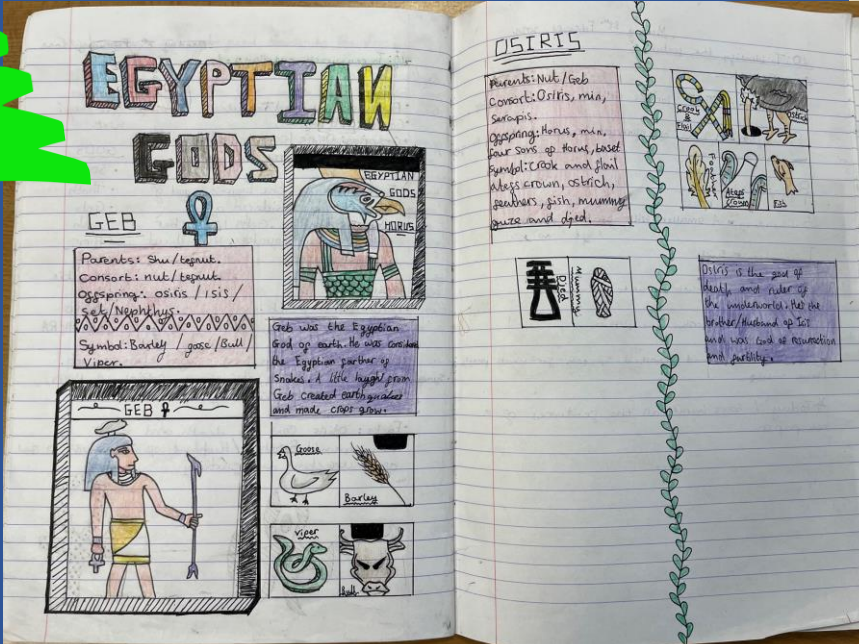 EGYPTIAN
GODS
GEB
Parents: Shu/tefnut.
Consort: nut/tefnut.
Offspring: osiris/isis/
set/Nephthys.
Symbol: Barley/goose/Bull/
Viper.
EGYPTIAN
GODS
HORUS
Geb was the Egyptian
God of earth. He was
the Egyptian farther of
Snakes. A little laught from
Geb created earthquakes
and made crops grow.
GEB
Goose
Barley
Viper
Bull
OSIRIS
Parents: Nut/Geb
Consort: Osiris, min,
Serapis.
Offspring: Horus, min,
four sons of Horus, baset
Symbol: Crook and flail
atefs crown, ostrich,
feathers, fish, mummy
guze and djed.
Crook
&
Flail
ostrich
Feather
Atefs
Crown
Fish
Djed
Mummy
Osiris is the god of
death and ruler of
the underworld. the
brother/Husband of
and was God of resurection
and fertility.